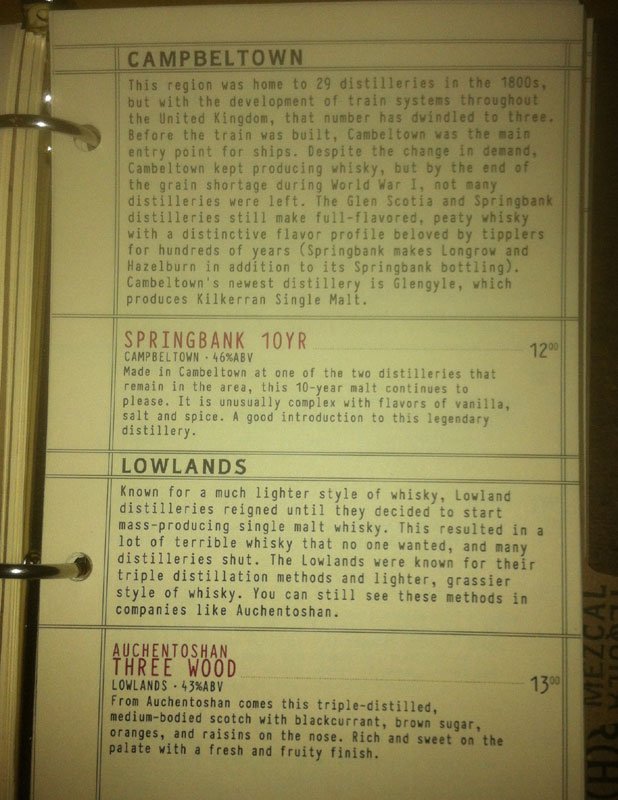 CAMPBELTOWN
This region was home to 29 distilleries in the 1800s,
but with the development of train systems throughout
the United Kingdom, that number has dwindled to three.
Before the train was built, Cambeltown was the main
entry point for ships. Despite the change in demand,
Cambeltown kept producing whisky, but by the end of
the grain shortage during World War I, not many
distilleries were left. The Glen Scotia and Springbank
distilleries still make full-flavored, peaty whisky
with a distinctive flavor profile beloved by tipplers
for hundreds of years (Springbank makes Longrow and
Hazelburn in addition to its Springbank bottling).
Cambeltown's newest distillery is Glengyle, which
produces Kilkerran Single Malt.
SPRINGBANK 10YR 1200
CAMPBELTOWN · 46%ABV
Made in Cambeltown at one of the two distilleries that
remain in the area, this 10-year malt continues to
please. It is unusually complex with flavors of vanilla,
salt and spice. A good introduction to this legendary
distillery.
LOWLANDS
Known for a much lighter style of whisky, Lowland
distilleries reigned until they decided to start
mass-producing single malt whisky. This resulted in a
lot of terrible whisky that no one wanted, and many
distilleries shut. The Lowlands were known for their
triple distillation methods and lighter, grassier
style of whisky. You can still see these methods in
companies like Auchentoshan.
AUCHENTOSHAN
THREE WOOD 1300
LOWLANDS · 43%ABV
From Auchentoshan comes this triple-distilled,
medium-bodied scotch with blackcurrant, brown sugar,
oranges, and raisins on the nose. Rich and sweet on the
palate with a fresh and fruity finish.
MEZCAL